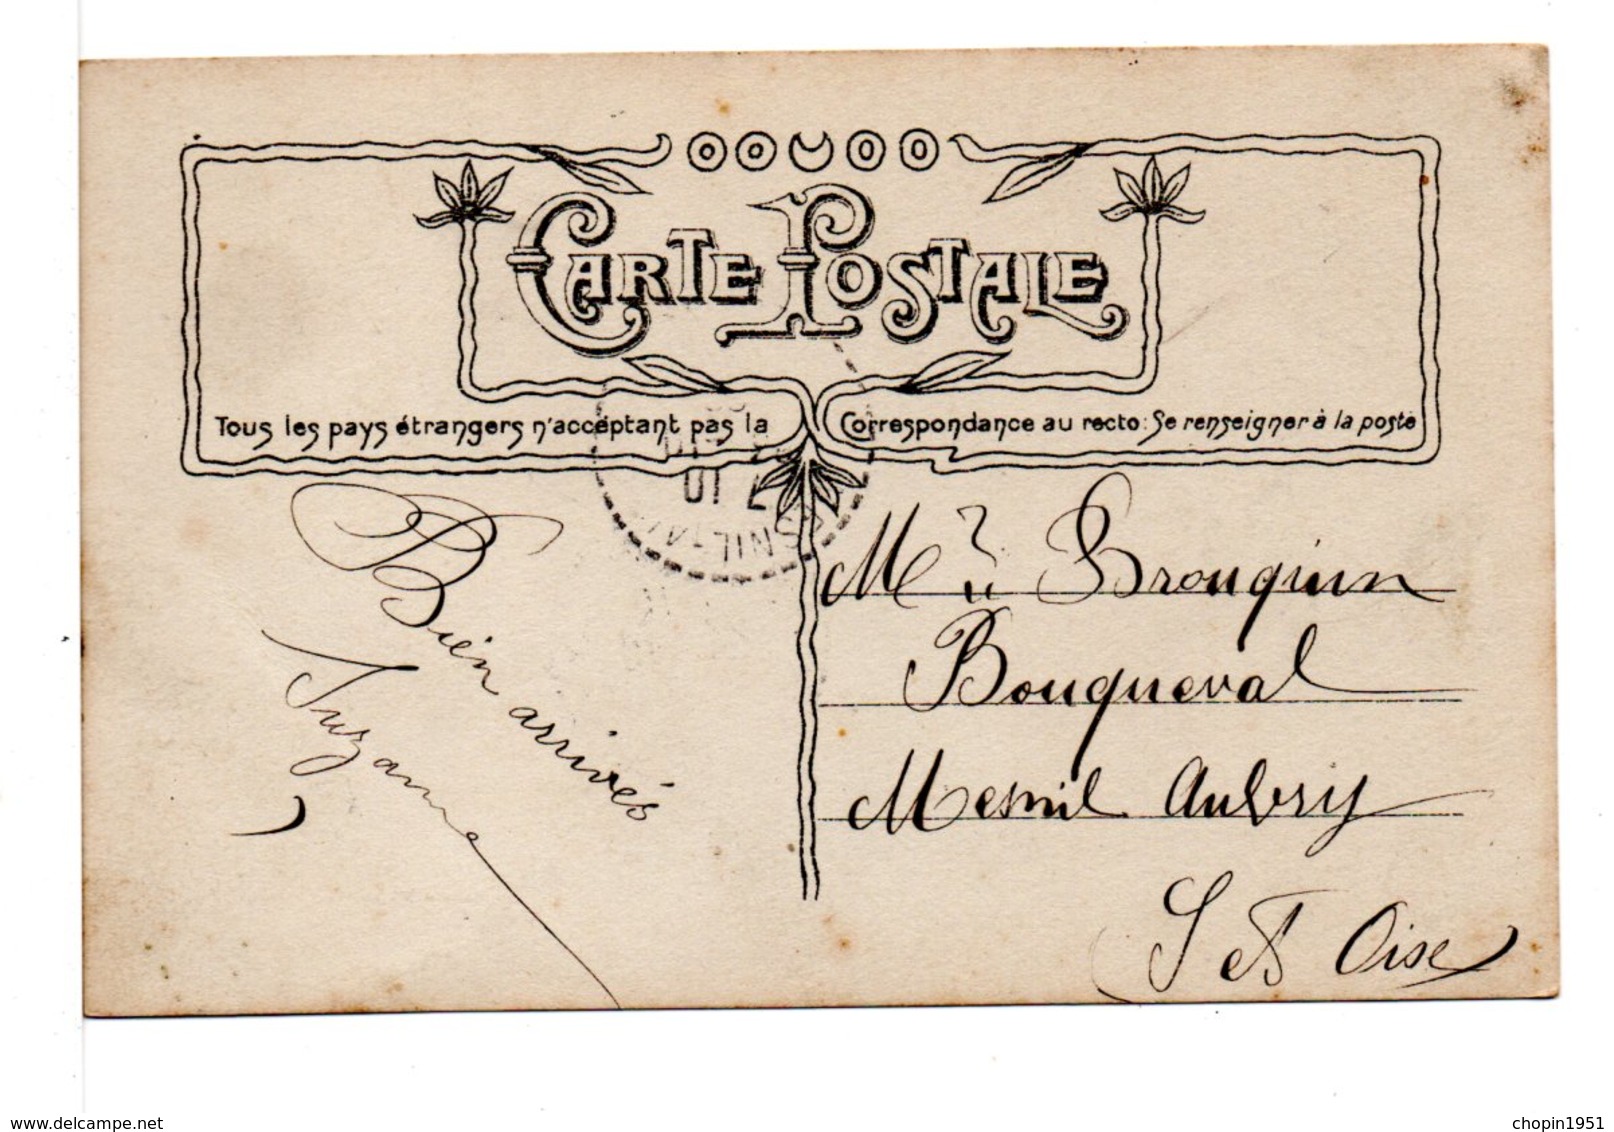 CARTE POSTALE
Tous les pays étrangers n'acceptant pas la Correspondance au recto: Se renseigner à la poste
Bien arrivés
Suzanne
Bouqueval
Mesnil Aubry
S et Oise
delcampe.net
chopin1951